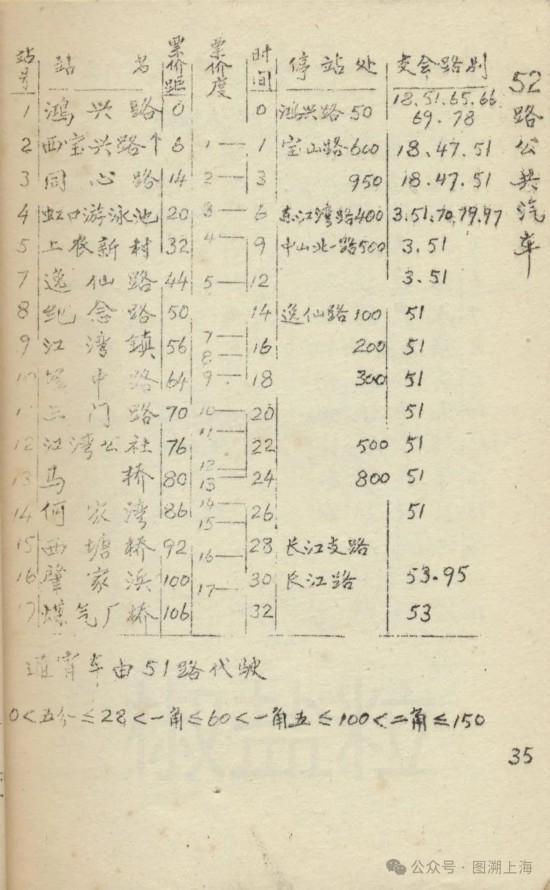 52路公共汽车
站号 站名 票价距 票价度 时间 停站处 交会路别
1 鸿兴路 0 0 鸿兴路 50 18.51.65.66.69.78
2 西宝兴路↑ 6 1 1 宝山路 600 18.47.51
3 同心路 14 2 3 950 18.47.51
4 虹口游泳池 20 3 6 东江湾路 400 3.51.70.79.97
5 上农新村 32 4 9 中山北一路 500 3.51
7 逸仙路 44 5 12 3.51
8 纪念路 50 14 逸仙路 100 51
9 江湾镇 56 7 8 16 200 51
10 中路 64 9 18 300 51
11 三门路 70 10 20 51
12 江湾公社 76 11 22 500 51
13 马桥 80 12 13 24 800 51
14 何家湾 86 14 15 26 51
15 西塘桥 92 16 28 长江支路
16 家浜 100 17 30 长江路 53.95
17 煤气厂桥 106 32 53
通宵车由51路代驶
0<五分≤28<一角≤60<一角五≤100<二角≤150
35
公众号·图溯上海